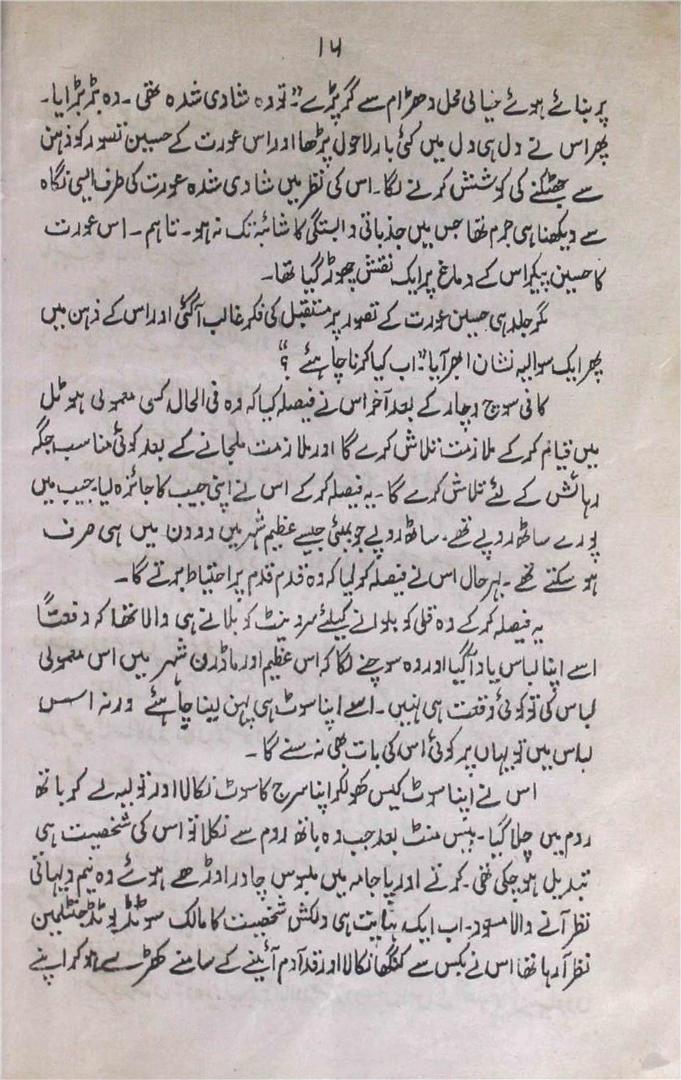 ۱۴
پر بنائے ہوئے خیالی محل دھڑام سے گر پڑے "تو وہ شادی شدہ تھی۔ وہ بڑبڑایا۔
پھر اس نے دل ہی دل میں کئی بار لاحول پڑھا اور اس عورت کے حسین تصور کو ذہن
سے جھٹکنے کی کوشش کرنے لگا۔ اس کی نظر میں شادی شدہ عورت کی طرف ایسی نگاہ
سے دیکھنا ہی جرم تھا جس میں جذباتی وابستگی کا شائبہ تک نہ ہو۔ تاہم۔ اس عورت
کا حسین پیکر اس کے دماغ پر ایک نقش چھوڑ گیا تھا۔
مگر جلد ہی حسین عورت کے تصور پر مستقبل کی فکر غالب آگئی اور اس کے ذہن میں
پھر ایک سوالیہ نشان ابھر آیا "اب کیا کرنا چاہئے ؟"
کافی سوچ وچار کے بعد آخر اس نے فیصلہ کیا کہ وہ فی الحال کسی معمولی ہوٹل
میں قیام کر کے ملازمت تلاش کرے گا اور ملازمت ملجانے کے بعد کوئی مناسب جگہ
رہائش کے لئے تلاش کرے گا۔ یہ فیصلہ کر کے اس نے اپنی جیب کا جائزہ لیا۔ جیب میں
پورے ساٹھ روپے تھے۔ ساٹھ روپے جو بمبئی جیسے عظیم شہر میں دو دن میں ہی صرف
ہو سکتے تھے۔ بہرحال اس نے فیصلہ کر لیا کہ وہ قدم قدم پر احتیاط برتے گا۔
یہ فیصلہ کر کے وہ قلی کو بلوانے کیلئے سرونیٹ کو بلانے ہی والا تھا کہ دفعتاً
اسے اپنا لباس یاد آگیا اور وہ سوچنے لگا کہ اس عظیم اور ماڈرن شہر میں اس معمولی
لباس کی تو کوئی وقعت ہی نہیں۔ اسے اپنا سوٹ ہی پہن لینا چاہئے ورنہ اس
لباس میں تو یہاں پر کوئی اس کی بات بھی نہ سنے گا۔
اس نے اپنا سوٹ کیس کھولکر اپنا سرج کا سوٹ نکالا اور تولیہ لے کر باتھ
روم میں چلا گیا۔ بیس منٹ بعد جب وہ باتھ روم سے نکلا تو اس کی شخصیت ہی
تبدیل ہو چکی تھی۔ کرتے اور پاجامہ میں ملبوس چادر اوڑھے ہوئے وہ نیم دیہاتی
نظر آنے والا مسعود۔ اب ایک نہایت ہی دلکش شخصیت کا مالک سوٹڈ بوٹڈ جنٹلمین
نظر آ رہا تھا اس نے بکس سے کنگھا نکالا اور قد آدم آئینے کے سامنے کھڑے ہو کر اپنے